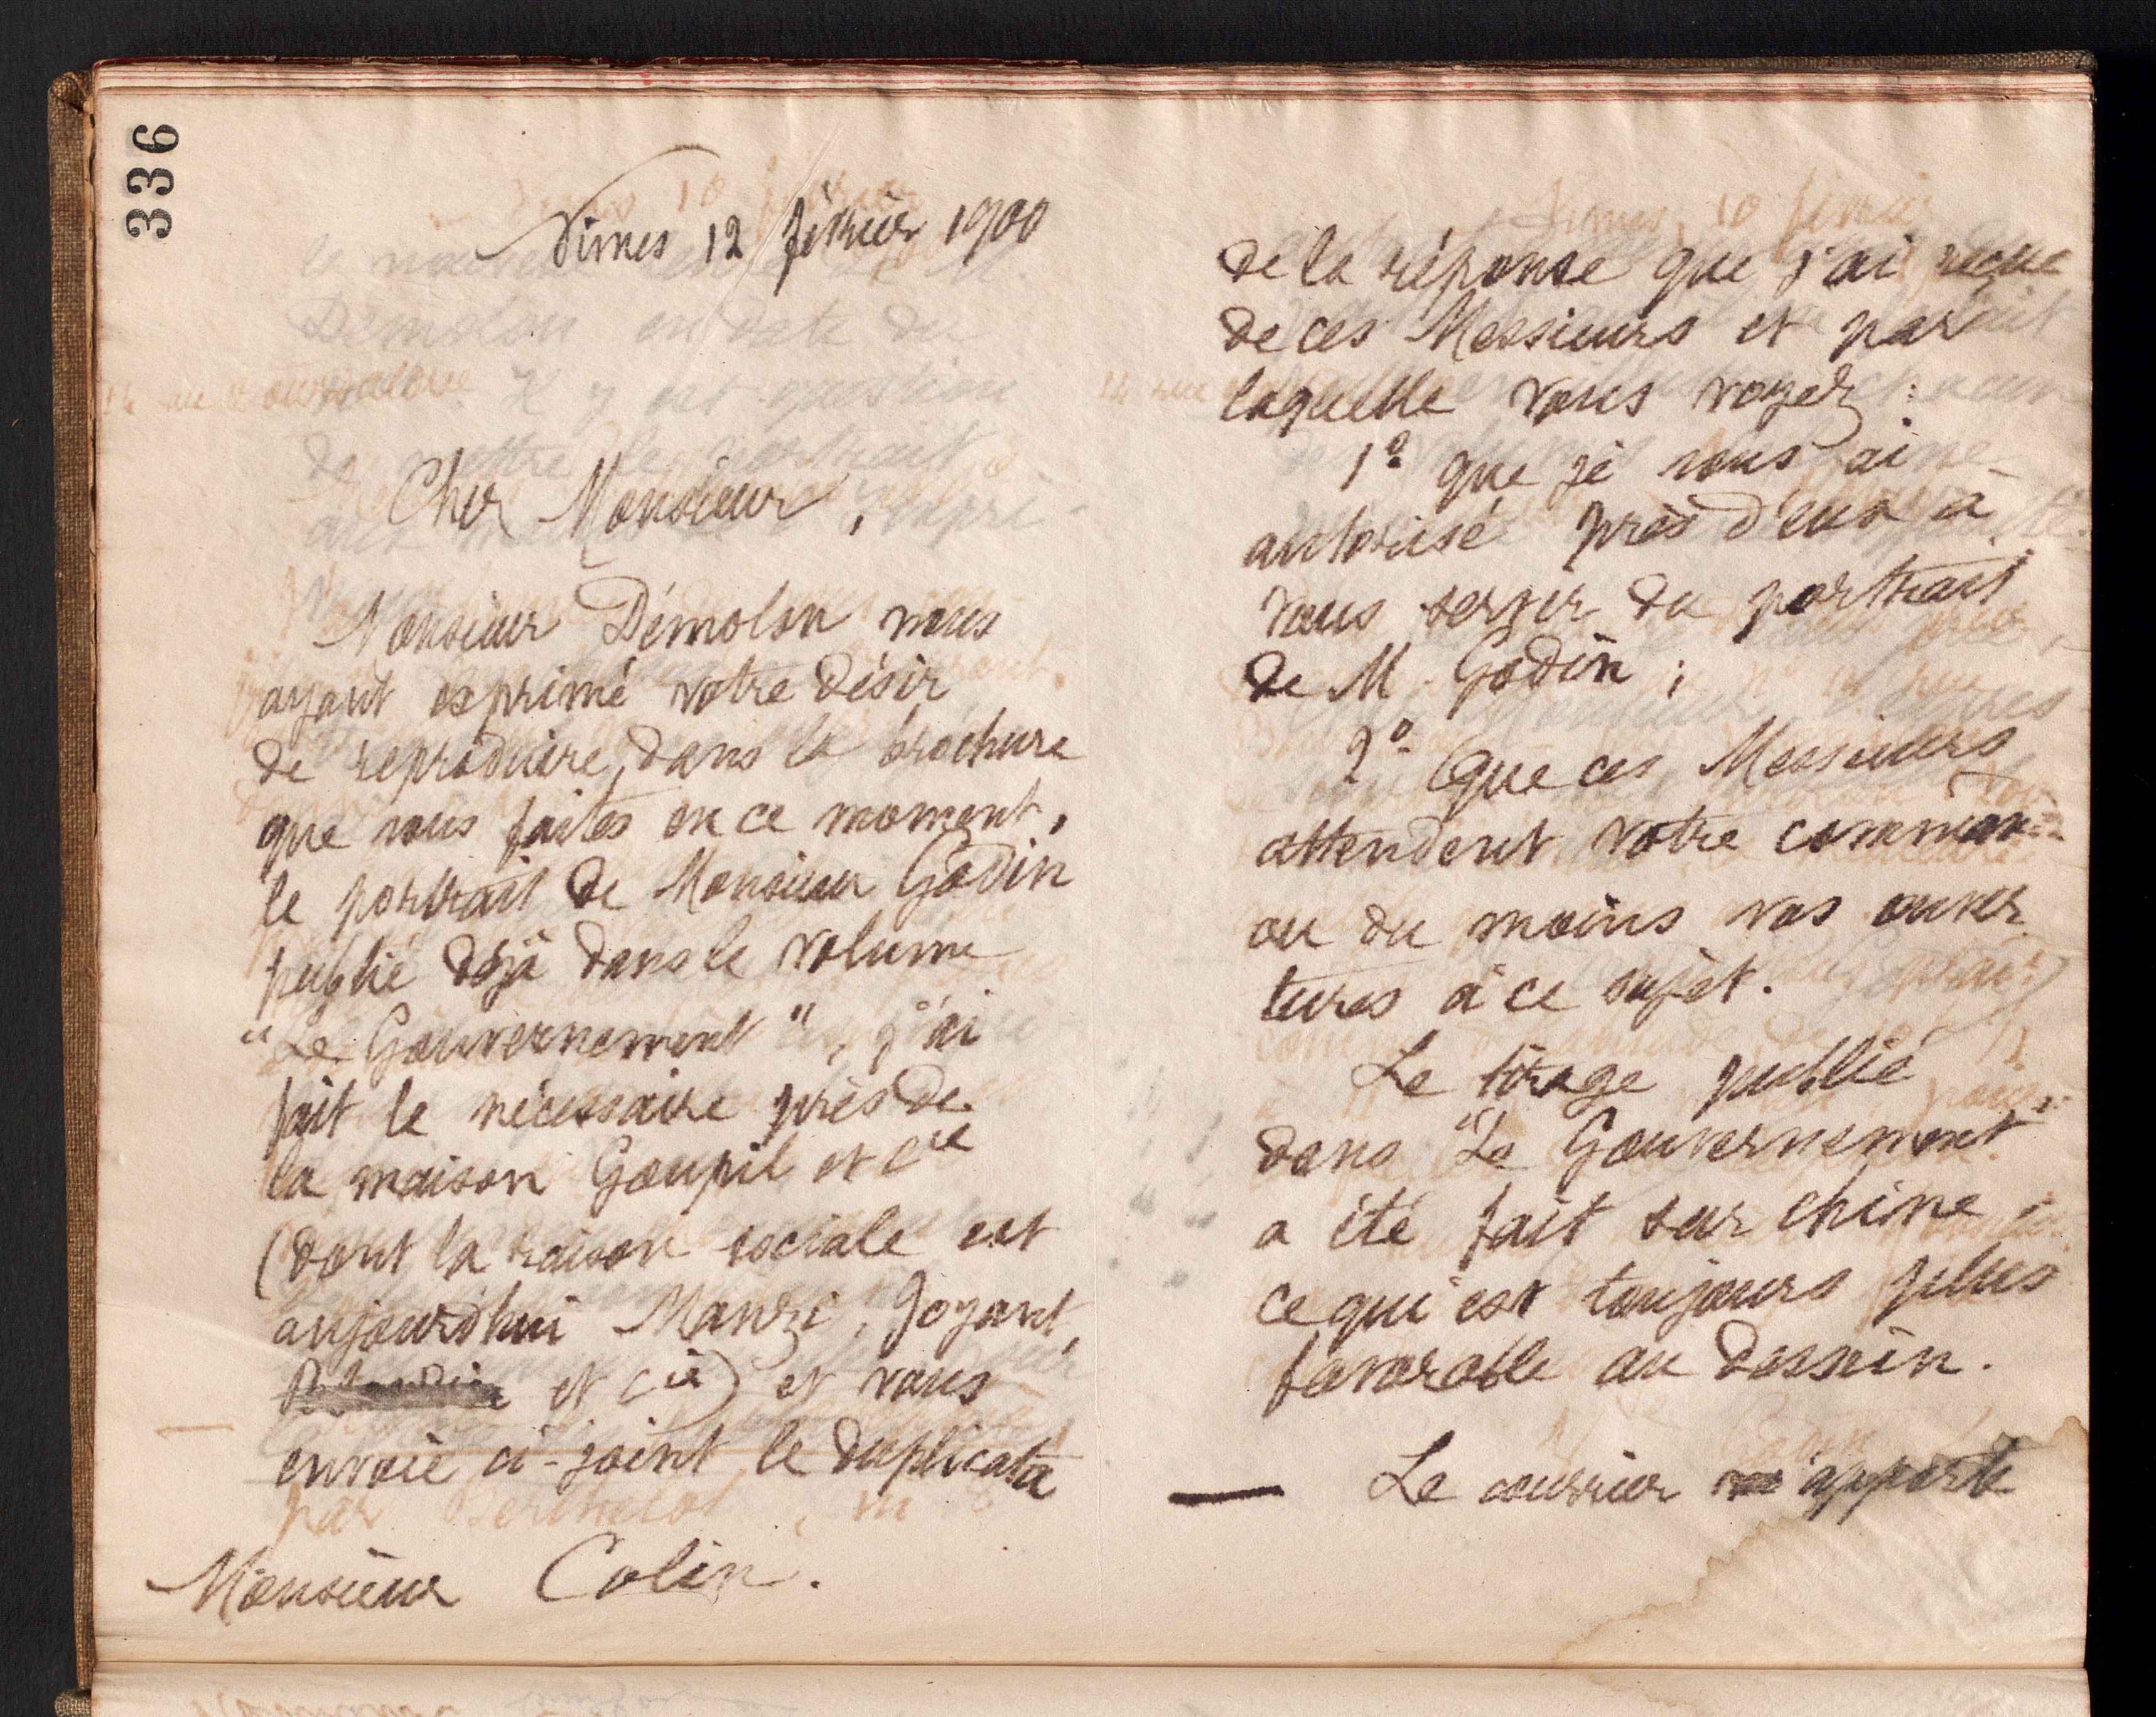 336
Nimes 12 février 1900
Cher Monsieur,
Monsieur Démolon nous
ayant exprimé votre désir
de reproduire, dans la brochure
que vous faites en ce moment,
le portrait de Monsieur Godin
publié déjà dans le volume
"Le Gouvernement", j'ai
fait le nécessaire près de
la maison Goupil et Cie
(dont la raison sociale est
aujourd'hui Manzi, Joyant,
et Cie) et vous
envoie ci-joint le duplicata
Monsieur Colin.
de la réponse que j'ai reçue
de ces Messieurs et par
laquelle vous voyez :
1o que je vous ai
autorisé près d'eux à
vous servir du portrait
de M. Godin ;
2o Que ces Messieurs
attendent votre comman-
ou du moins vos ouver
tures à ce sujet.
Le tirage publié
dans "Le Gouvernement"
a été fait sur chine,
ce qui est toujours plus
favorable au dessin.
Le courrier m'apporte